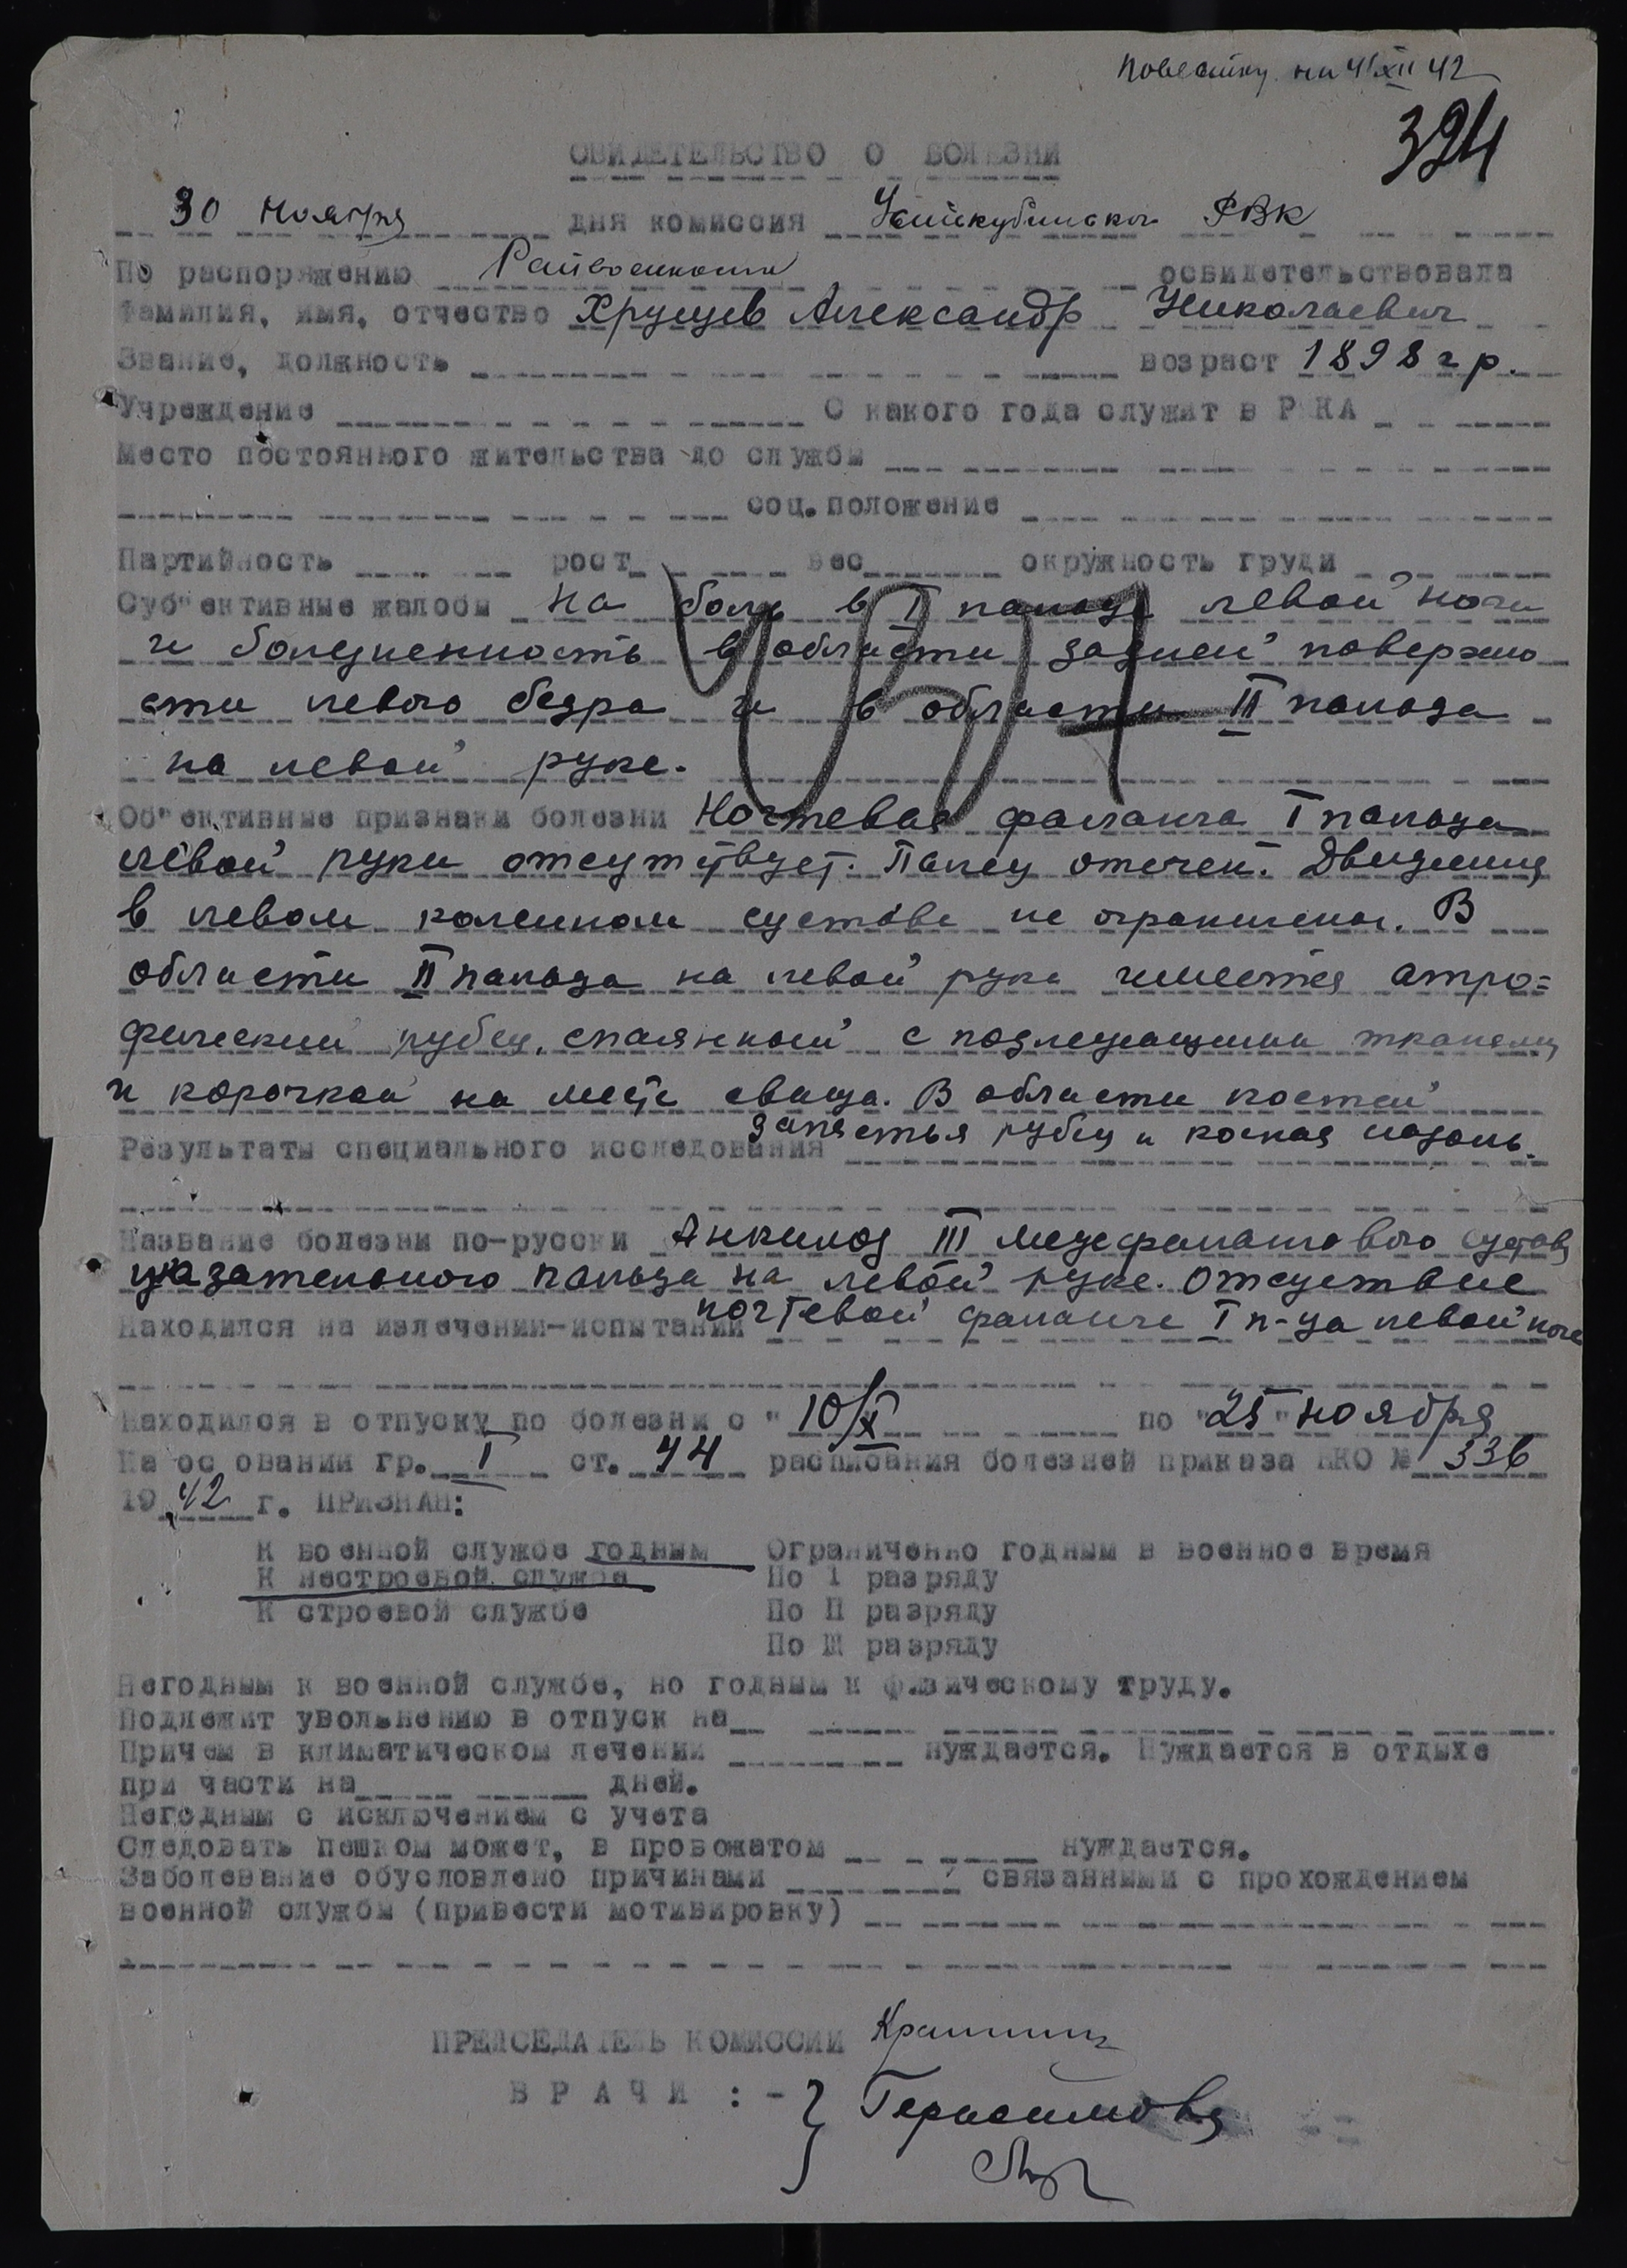 Повестку на 4/XII 42
324
СВИДЕТЕЛЬСТВО О БОЛЕЗНИ
30 Ноября дня комиссия Усть-кубинского РВК
По распоряжению Райвоенкома освидетельствовала
Фамилия, имя, отчество Хрущев Александр Николаевич
Звание, должность возраст 1898 г р.
Учреждение С какого года служит в РККА
Место постоянного жительства до службы
соц.положение
Партийность рост вес окружность груди
Суб"ективные жалобы на боль в I пальце левой ноги
и болезненность в области задней поверхно
сти левого бедра и в области II пальца
на левой руке.
Об"ективные признаки болезни Ногтевая фаланга I пальца
левой руки отсутствует. Палец отечен. Движения
в левом коленном суставе не ограничены. В
области II пальца на левой руке имеется атро=
фический рубец, спаянный с подлежащими тканями
и корочкой на месте свища. В области костей
запястья рубец и костная мозоль.
Результаты специального исследования
Название болезни по-русски Анкилоз III межфалангового сустава
указательного пальца на левой руке. Отсутствие
ногтевой фаланги I п-ца левой ноги
Находился на излечении-испытании
Находился в отпуску по болезни с " 10/X по "25" ноября
На основании гр. I ст. 44 расписания болезней приказа НКО № 336
19 42 г. ПРИЗНАН:
К военной службе годным Ограниченно годным в военное время
К нестроевой службе По I разряду
К строевой службе По II разряду
По III разряду
Негодным к военной службе, но годным к физическому труду.
Подлежит увольнению в отпуск на
Причем в климатическом лечении нуждается. Нуждается в отдыхе
при части на дней.
Негодным с исключением с учета
Следовать пешком может, в провожатом нуждается.
Заболевание обусловлено причинами связанными с прохождением
военной службы (привести мотивировку)
ПРЕДСЕДАТЕЛЬ КОМИССИИ
ВРАЧИ :- Герасимова